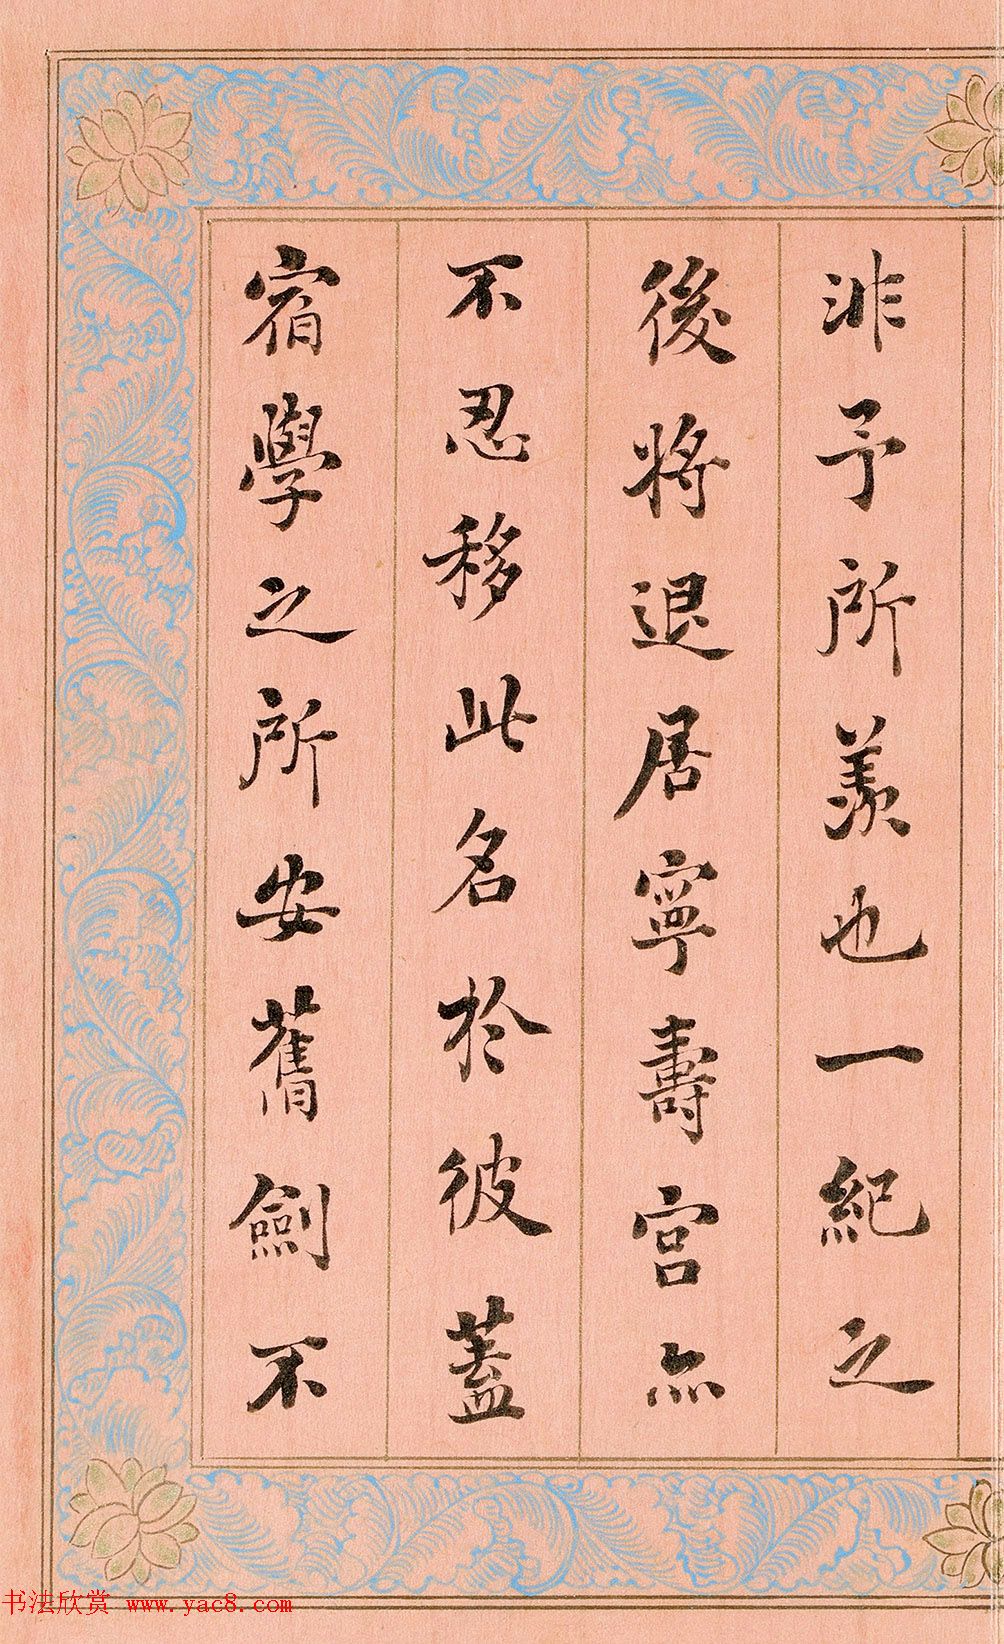 非予所羨也一紀之
後將退居寧壽宮亦
不忍移此名於彼蓋
宿學之所安舊劍不
书法欣赏 www.yac8.com